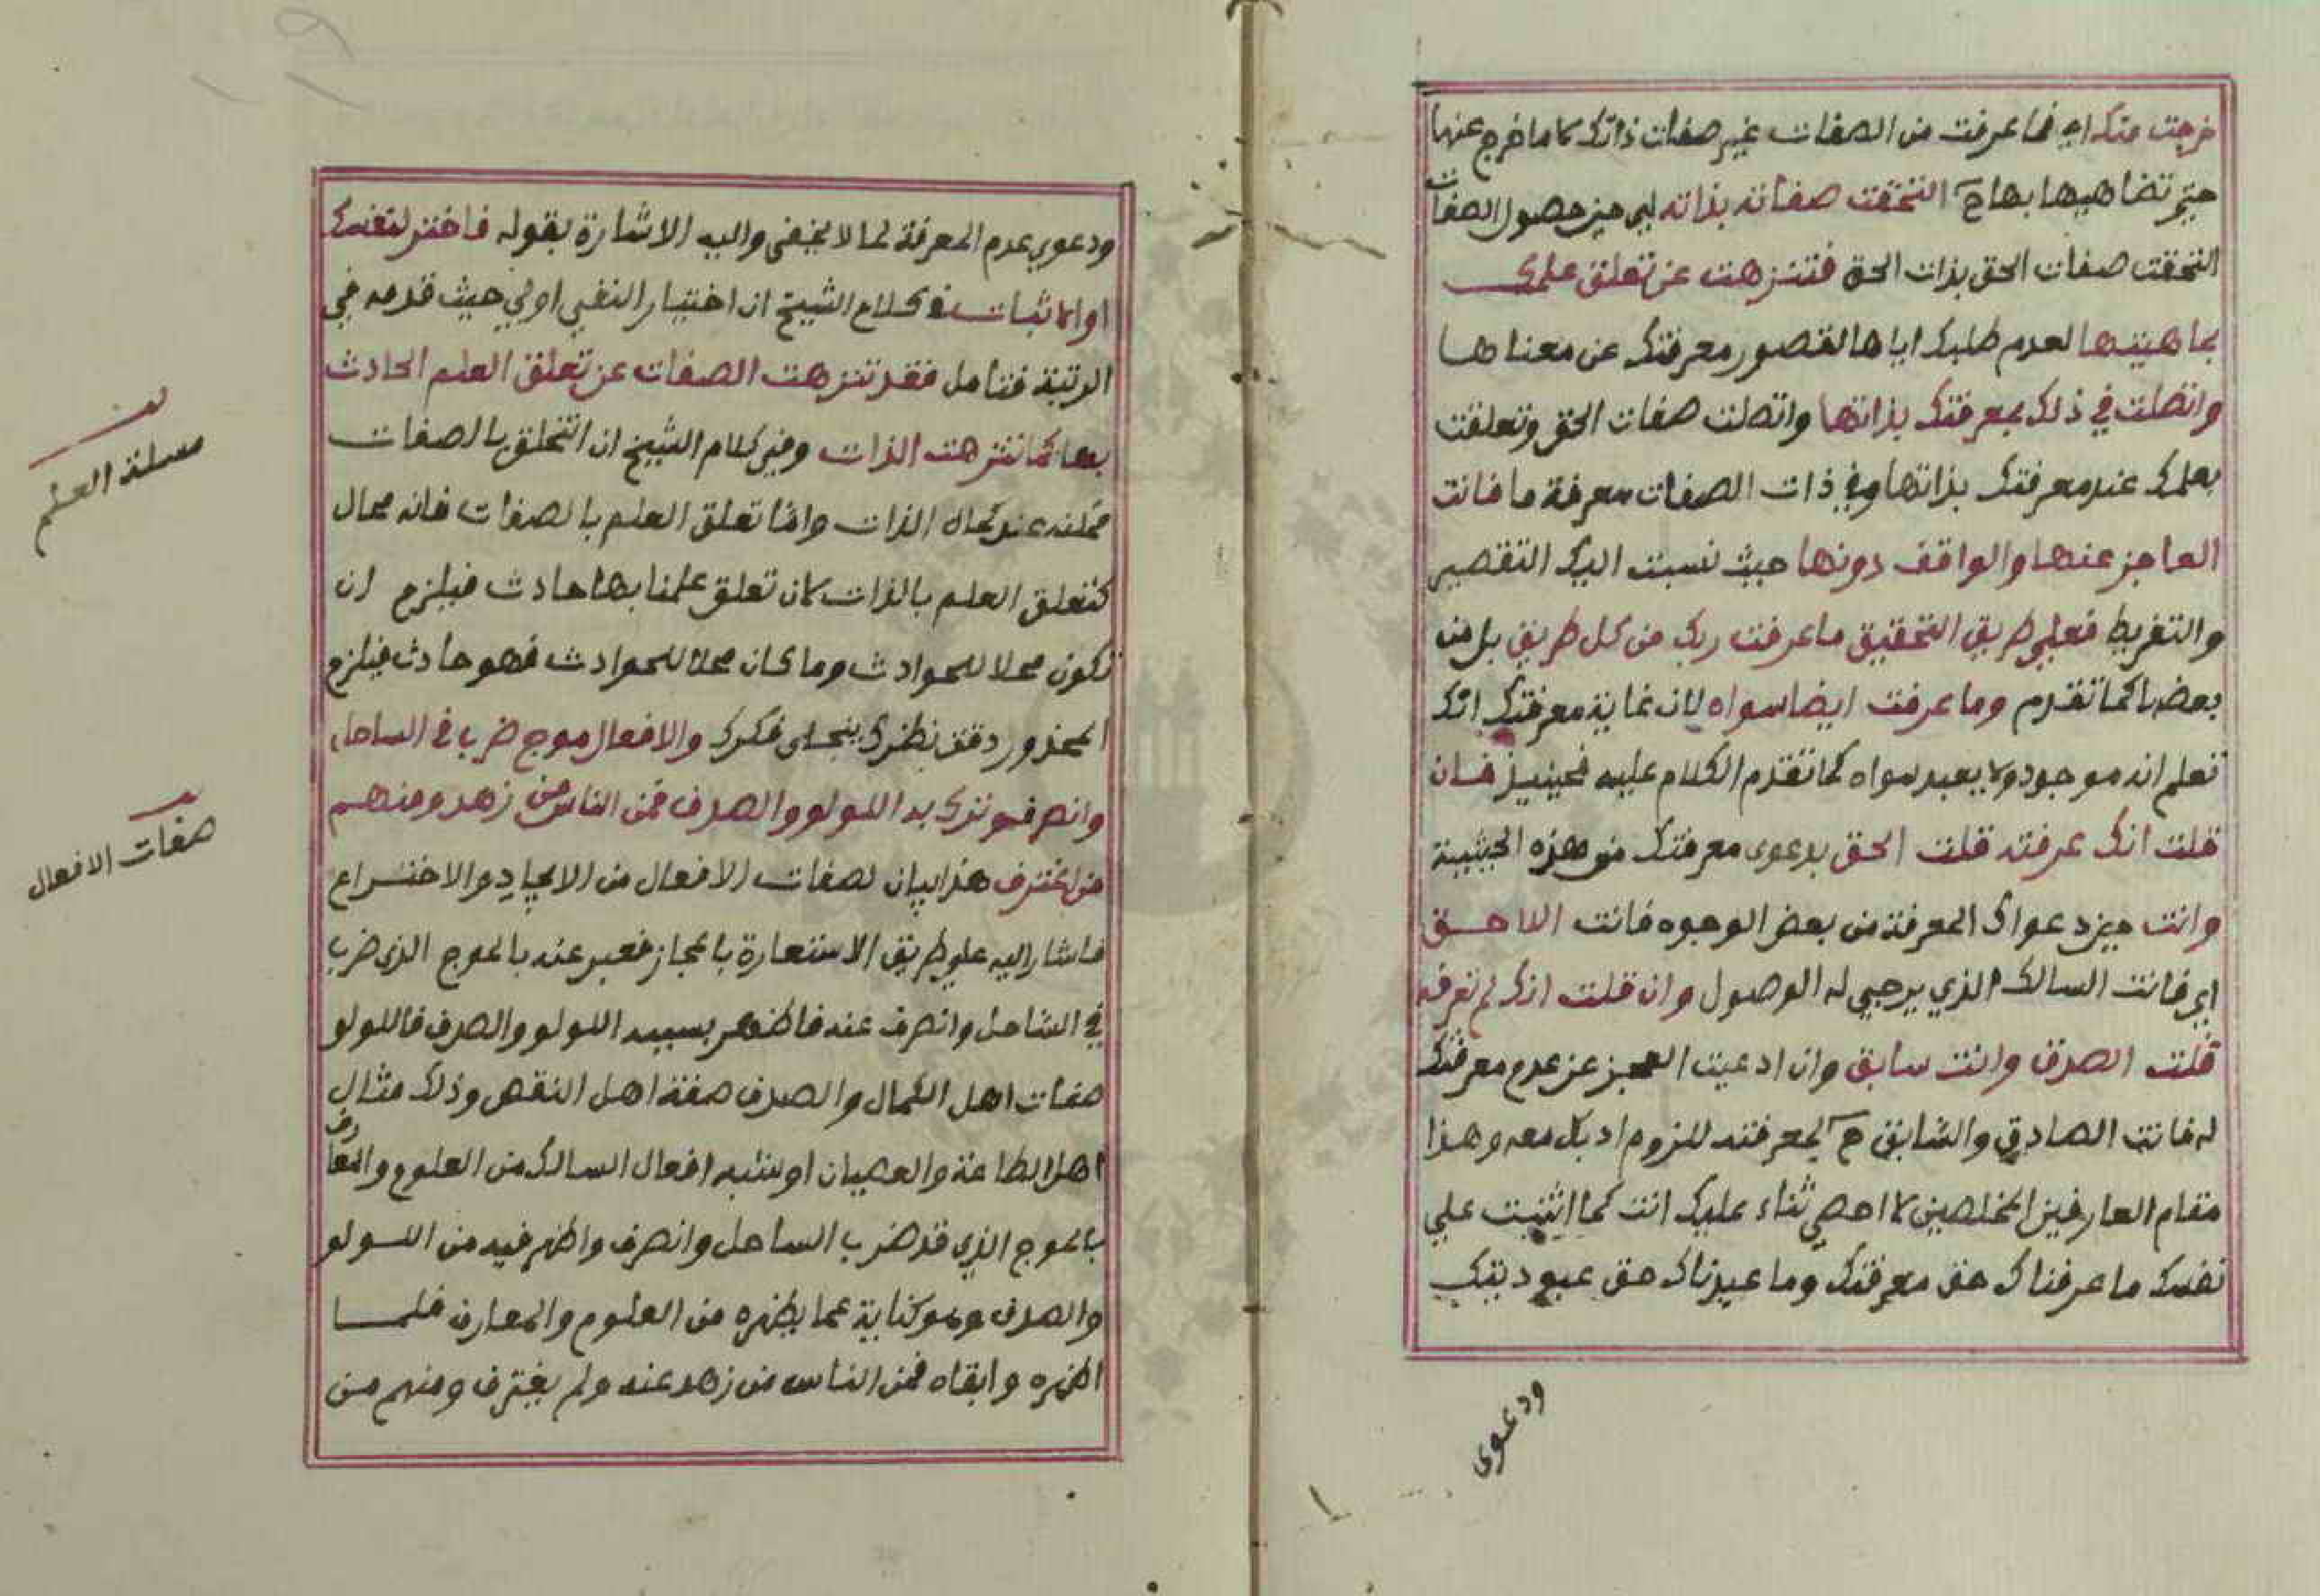 خرجت منك اي فما عرفت من الصفات غير صفات ذاتك كاما خرج عنها
حتي تضاهيها بها ح التحقت صفاته بذاته اي حين حصول الصفات
التحقت صفات الحق بذات الحق فتنزهت عن تعلق علمك
بماهيتها لعدم طلبك اياها لقصور معرفتك عن معناها
واتصلت في ذلك بمعرفتك بذاتها واتصلت صفات الحق وتعلقت
بعلمك عند معرفتك بذاتها وفي ذات الصفات معرفة ما فانت
العاجز عنها والواقف دونها حيث نسبت اليك التقصير
والتفريط فعلي طريق التحقيق ما عرفت ربك من كل طريق بل من
بعضها كما تقدم وما عرفت ايضا سواه لان غاية معرفتك انك
تعلم انه موجود ولا يعبد سواه كما تقدم الكلام عليه فحينيذ فان
قلت انك عرفته قلت الحق بدعوى معرفتك من هذه الحيثية
وانت حيزد عواك المعرفة من بعض الوجوه فانت اللاحق
اي فانت السالك الذي يرجي له الوصول وان قلت انك لم تعرفه
قلت الصدق وانت سابق وان ادعيت العجز عن عدم معرفتك
له فانت الصادق والسابق ح لمعرفته للزوم ادبك معه وهذا
مقام العارفين المخلصين لا احصي ثناء عليك انت كما اثنيت علي
نفسك ما عرفناك حق معرفتك وما عبدناك حق عبوديتك
ودعوى
ودعوي عدم المعرفة لما لا يخفى واليه الاشارة بقوله فاختر لنفسك
او الاثبات ففي كلام الشيخ ان اختيار النفي اولي حيث قدمه في
الرتبة فتامل فقد تنزهت الصفات عن تعلق العلم الحادث
بها كما تنزهت الذات وفي كلام الشيخ ان التخلق بالصفات
محله عند كمال الذات واما تعلق العلم بالصفات فانه محال
كتعلق العلم بالذات لان تعلق علمنا بها حادث فيلزم ان
تكون محلا للحوادث وما كان محلا للحوادث فهو حادث فيلزم
المحذور دقق نظرك ينجلى فكرك والافعال موج ضرب في الساحل
وانصرف وترك به اللولو والصدف فمن الناس من زهد ومنهم
من اغترف هذا بيان لصفات الافعال من الايجاد والاختراع
فاشار اليه علي طريق الاستعارة بالمجاز فعبر عنه بالموج الذي ضرب
في الساحل وانصرف عنه فاظهر بسببه اللولو والصدف فاللولو
صفات اهل الكمال والصدف صفة اهل النقص وذلك مثال
اهل الطاعة والعصيان او شبه افعال السالك من العلوم والمعارف
بالموج الذي قد ضرب الساحل وانصرف واظهر فيه من اللولو
والصدف وهو كناية عما يظهره من العلوم والمعارف فلما
اظهره وابقاه فمن الناس من زهد عنه ولم يغترف ومنهم من
مسلة العلم
صفات الافعال